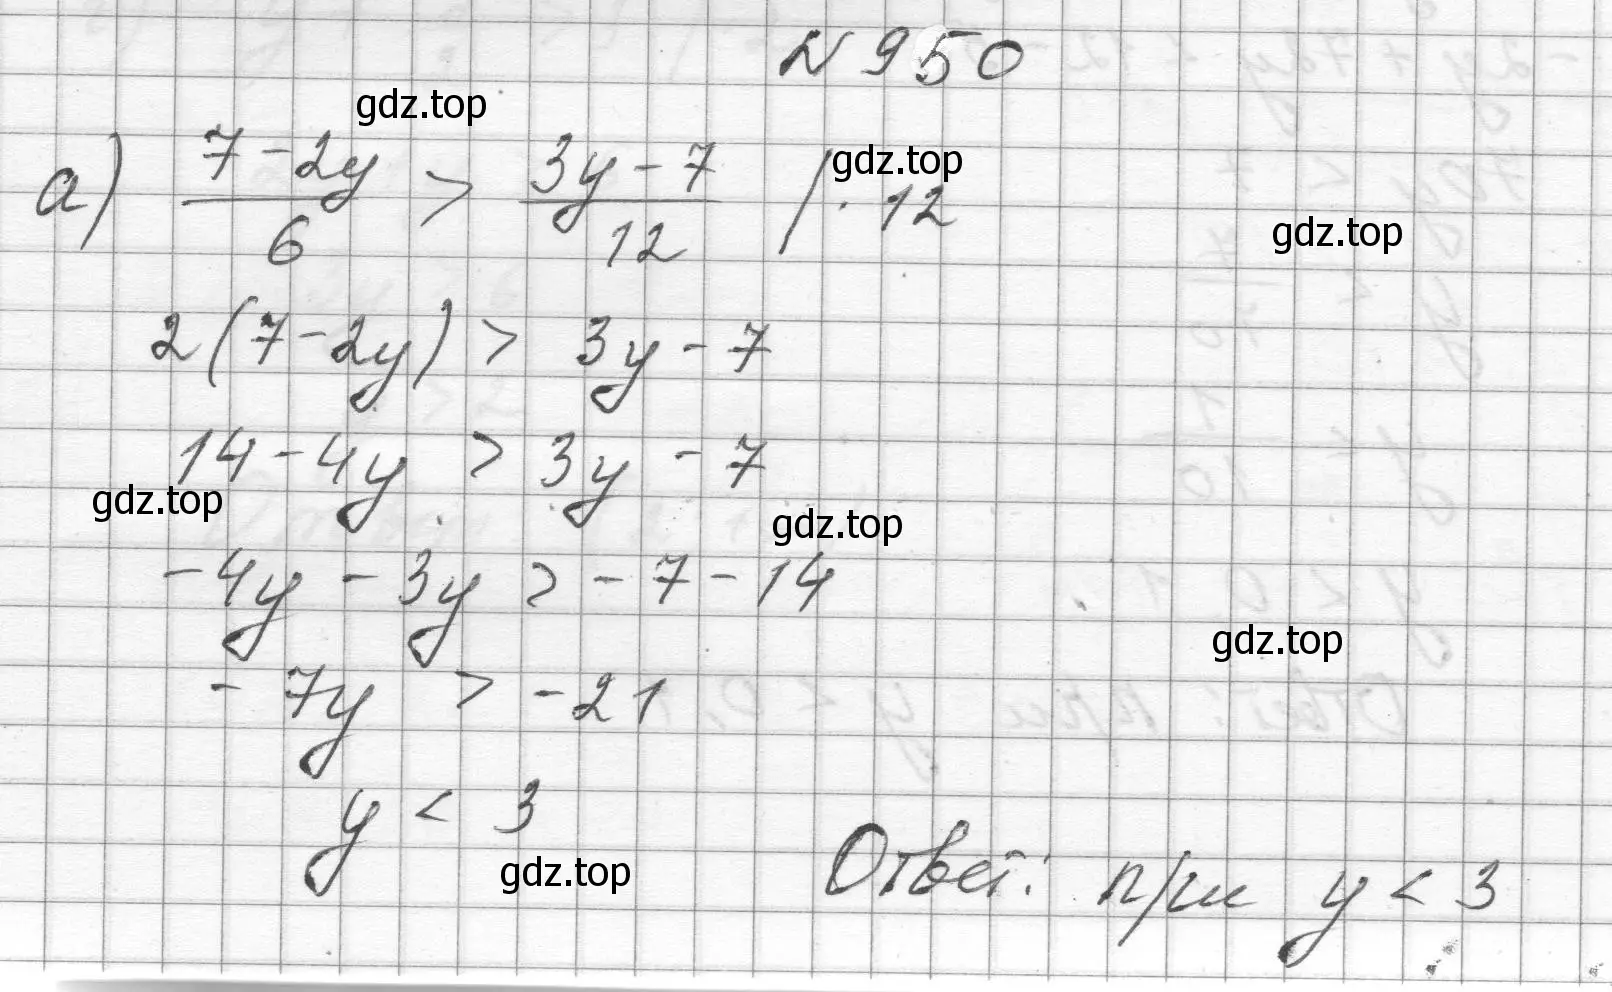 N 950
gdz.top
а) \frac{7-2y}{6} > \frac{3y-7}{12} / · 12
gdz.top
gdz.top
2(7-2y) > 3y-7
14-4y > 3y-7
gdz.top
gdz.top
-4y-3y > -7-14
gdz.top
-7y > -21
y < 3
gdz.top
Ответ: при y < 3